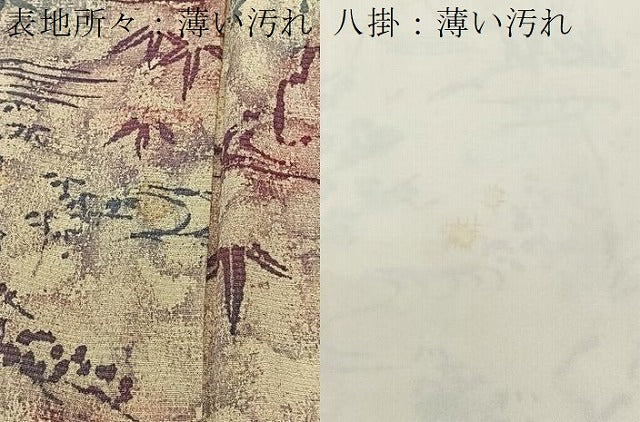 表地所々：薄い汚れ
八掛：薄い汚れ